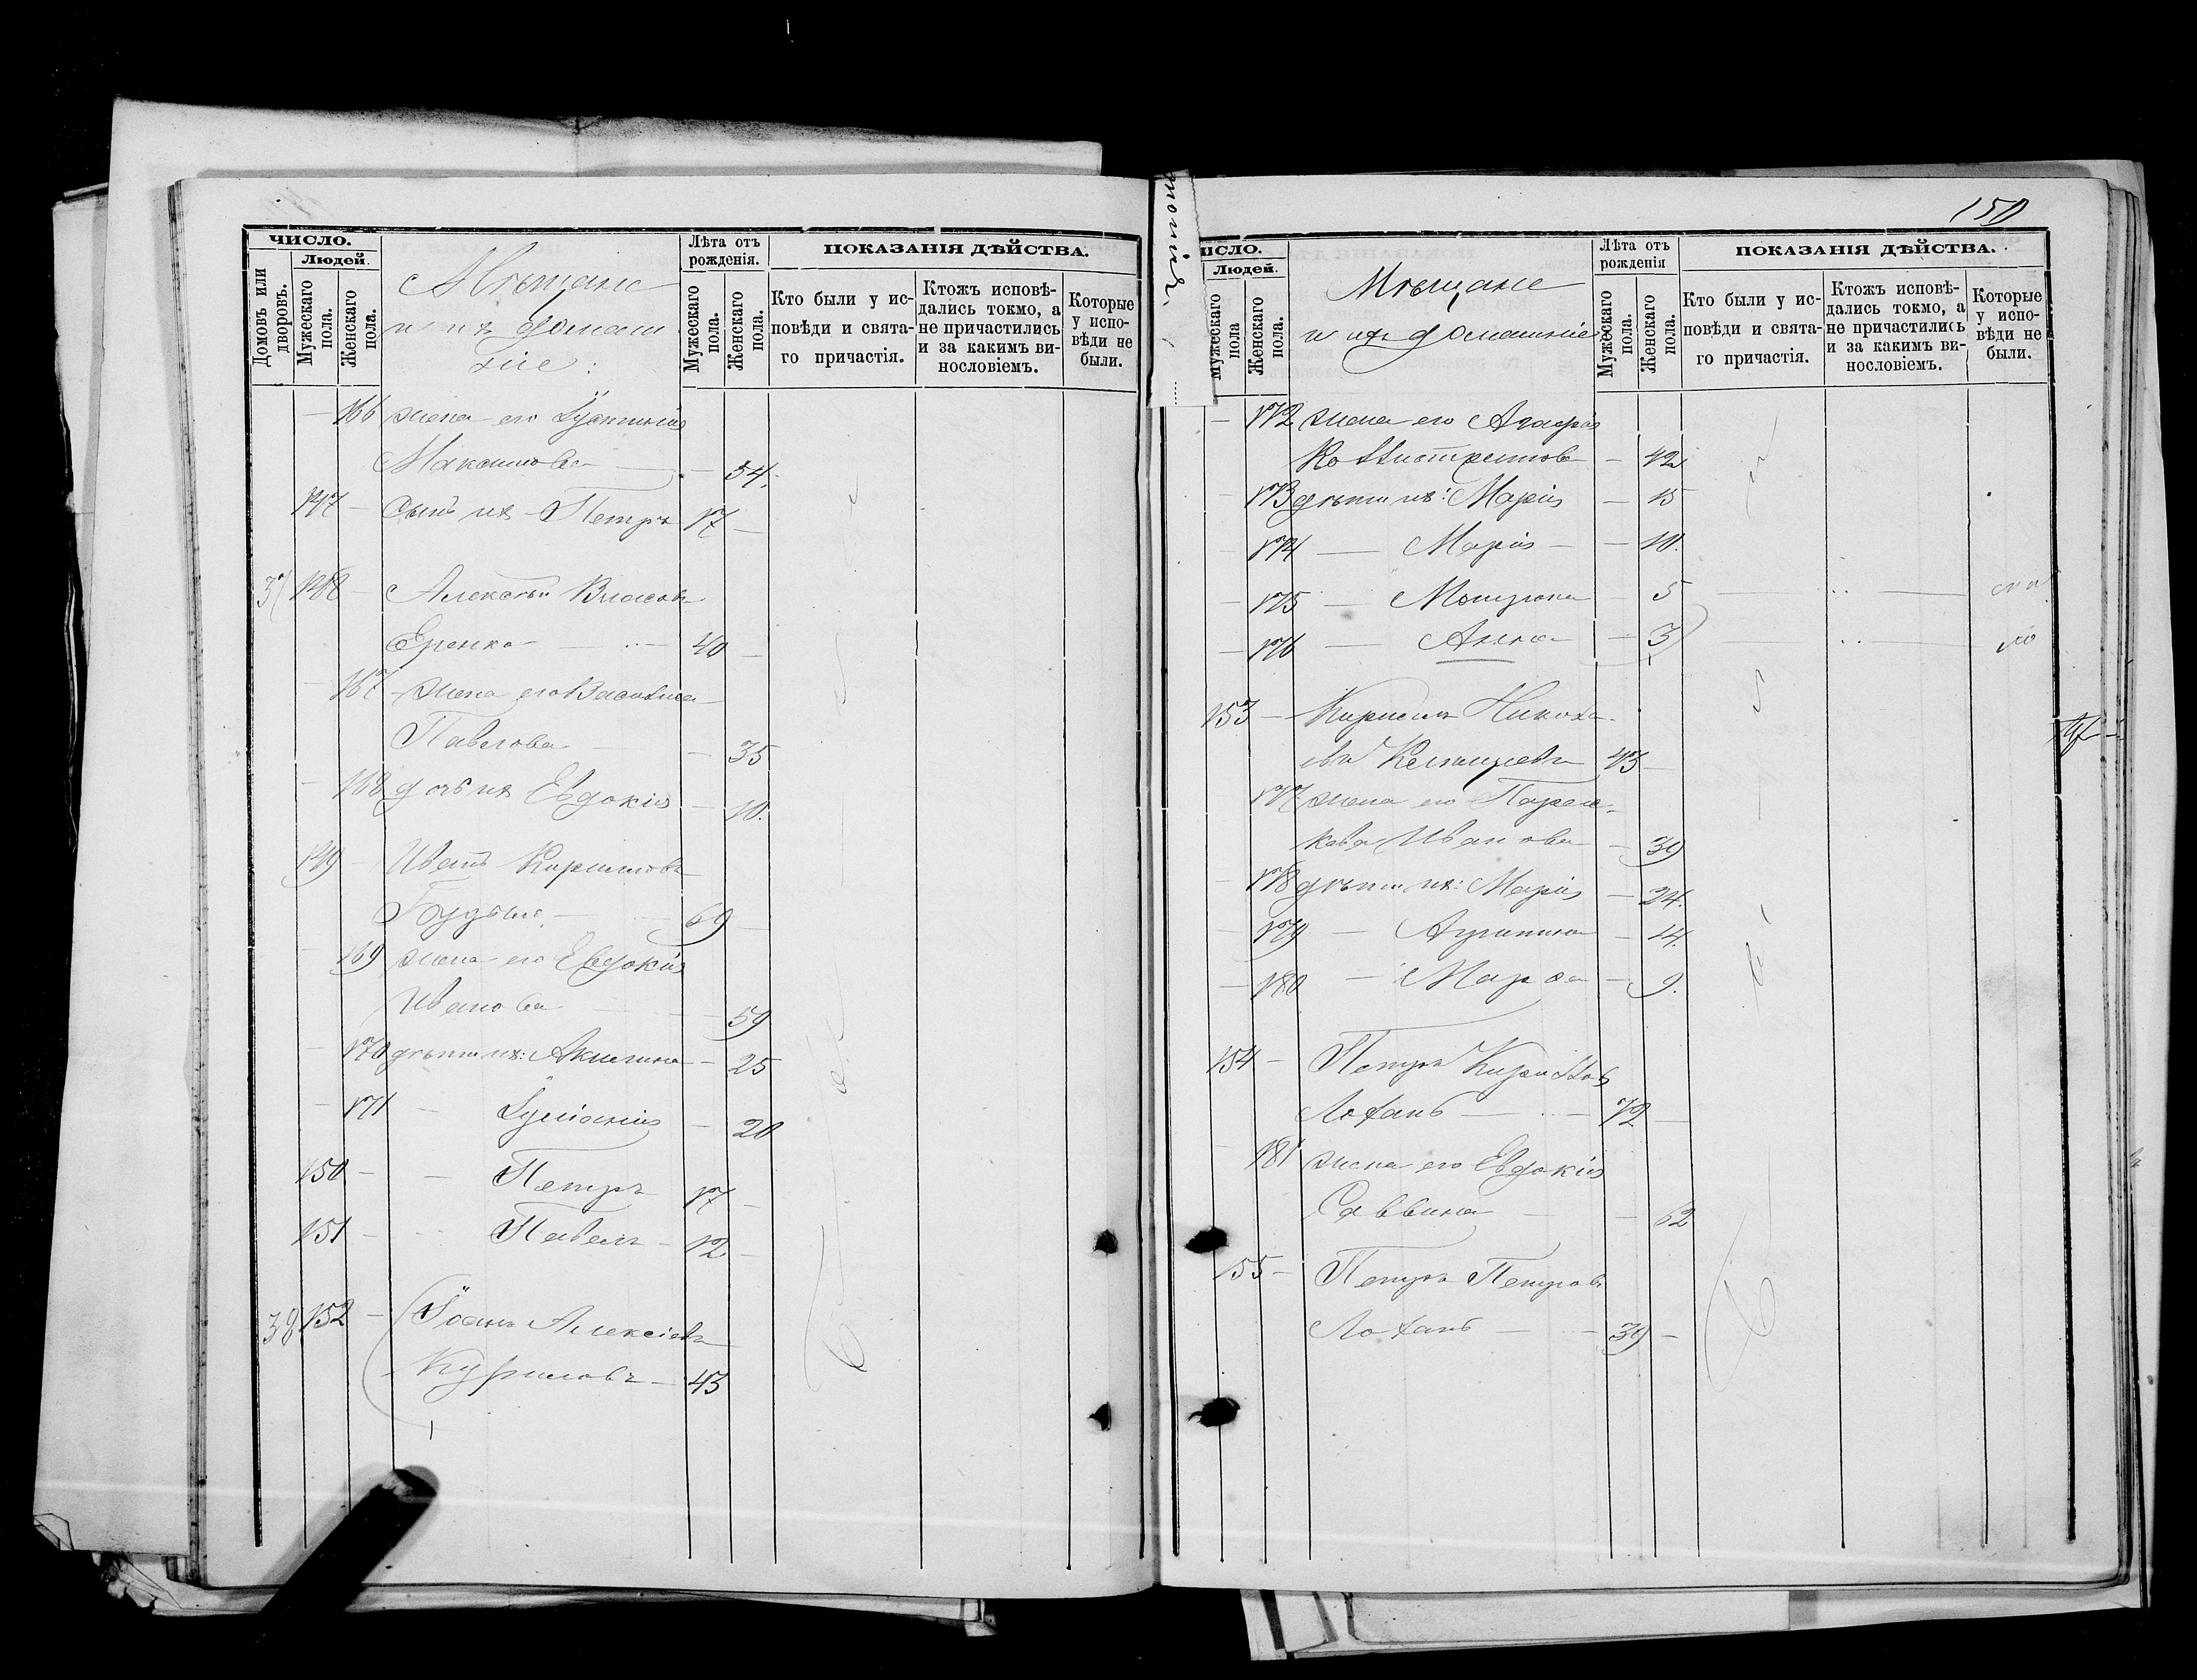 ЧИСЛО.
Домовъ или дворовъ.
Людей.
Мужескаго пола.
Женскаго пола.
Мѣщане
и ихъ домаш
ніе:
Лѣта отъ рожденія.
Мужескаго пола.
Женскаго пола.
ПОКАЗАНІЯ ДѢЙСТВА.
Кто были у ис-
повѣди и свята-
го причастія.
Ктожъ исповѣ-
дались токмо, а
не причастились
и за какимъ ви-
нословіемъ.
Которые
у испо-
вѣди не
были.
166 жена его Іустинія
Максимова 54.
147 Сынъ ихъ Петръ 17
37 148 Алексѣй Власовъ
40
167 жена его Василиса
Павлова 35
168 дочь ихъ Евдокія 10.
149 Иванъ Кирилловъ
69
169 жена его Евдокія
Иванова 59
170 дѣти ихъ: Акилина 25
171 Іуліанія 20
150 Петръ 17
151 Павелъ 12
38 152 Іоанъ Алексіевъ
Куриловъ 43
150
ИСЛО.
Людей.
Мужескаго пола
Женскаго пола.
Мѣщане
и ихъ домашніе
Лѣта отъ рожденія
Мужескаго пола.
Женскаго пола.
ПОКАЗАНІЯ ДѢЙСТВА.
Кто были у ис-
повѣди и свята-
го причастія.
Ктожъ исповѣ-
дались токмо, а
не причастились
и за какимъ ви-
нословіемъ.
Которые
у испо-
вѣди не
были.
172 жена его Агафія
42
173 дѣти ихъ: Марія 15
174 Марія 10.
175 5
176 Анна 3
153 Кирилъ Никола
43
177 жена его Парас
кева Иванова 39
178 дѣти ихъ: Марія 24.
179 Агрипина 14.
180 Марѳа 9.
154 Петръ
72
181 жена его Евдокія
Саввина 62
155 Петръ Петровъ
39